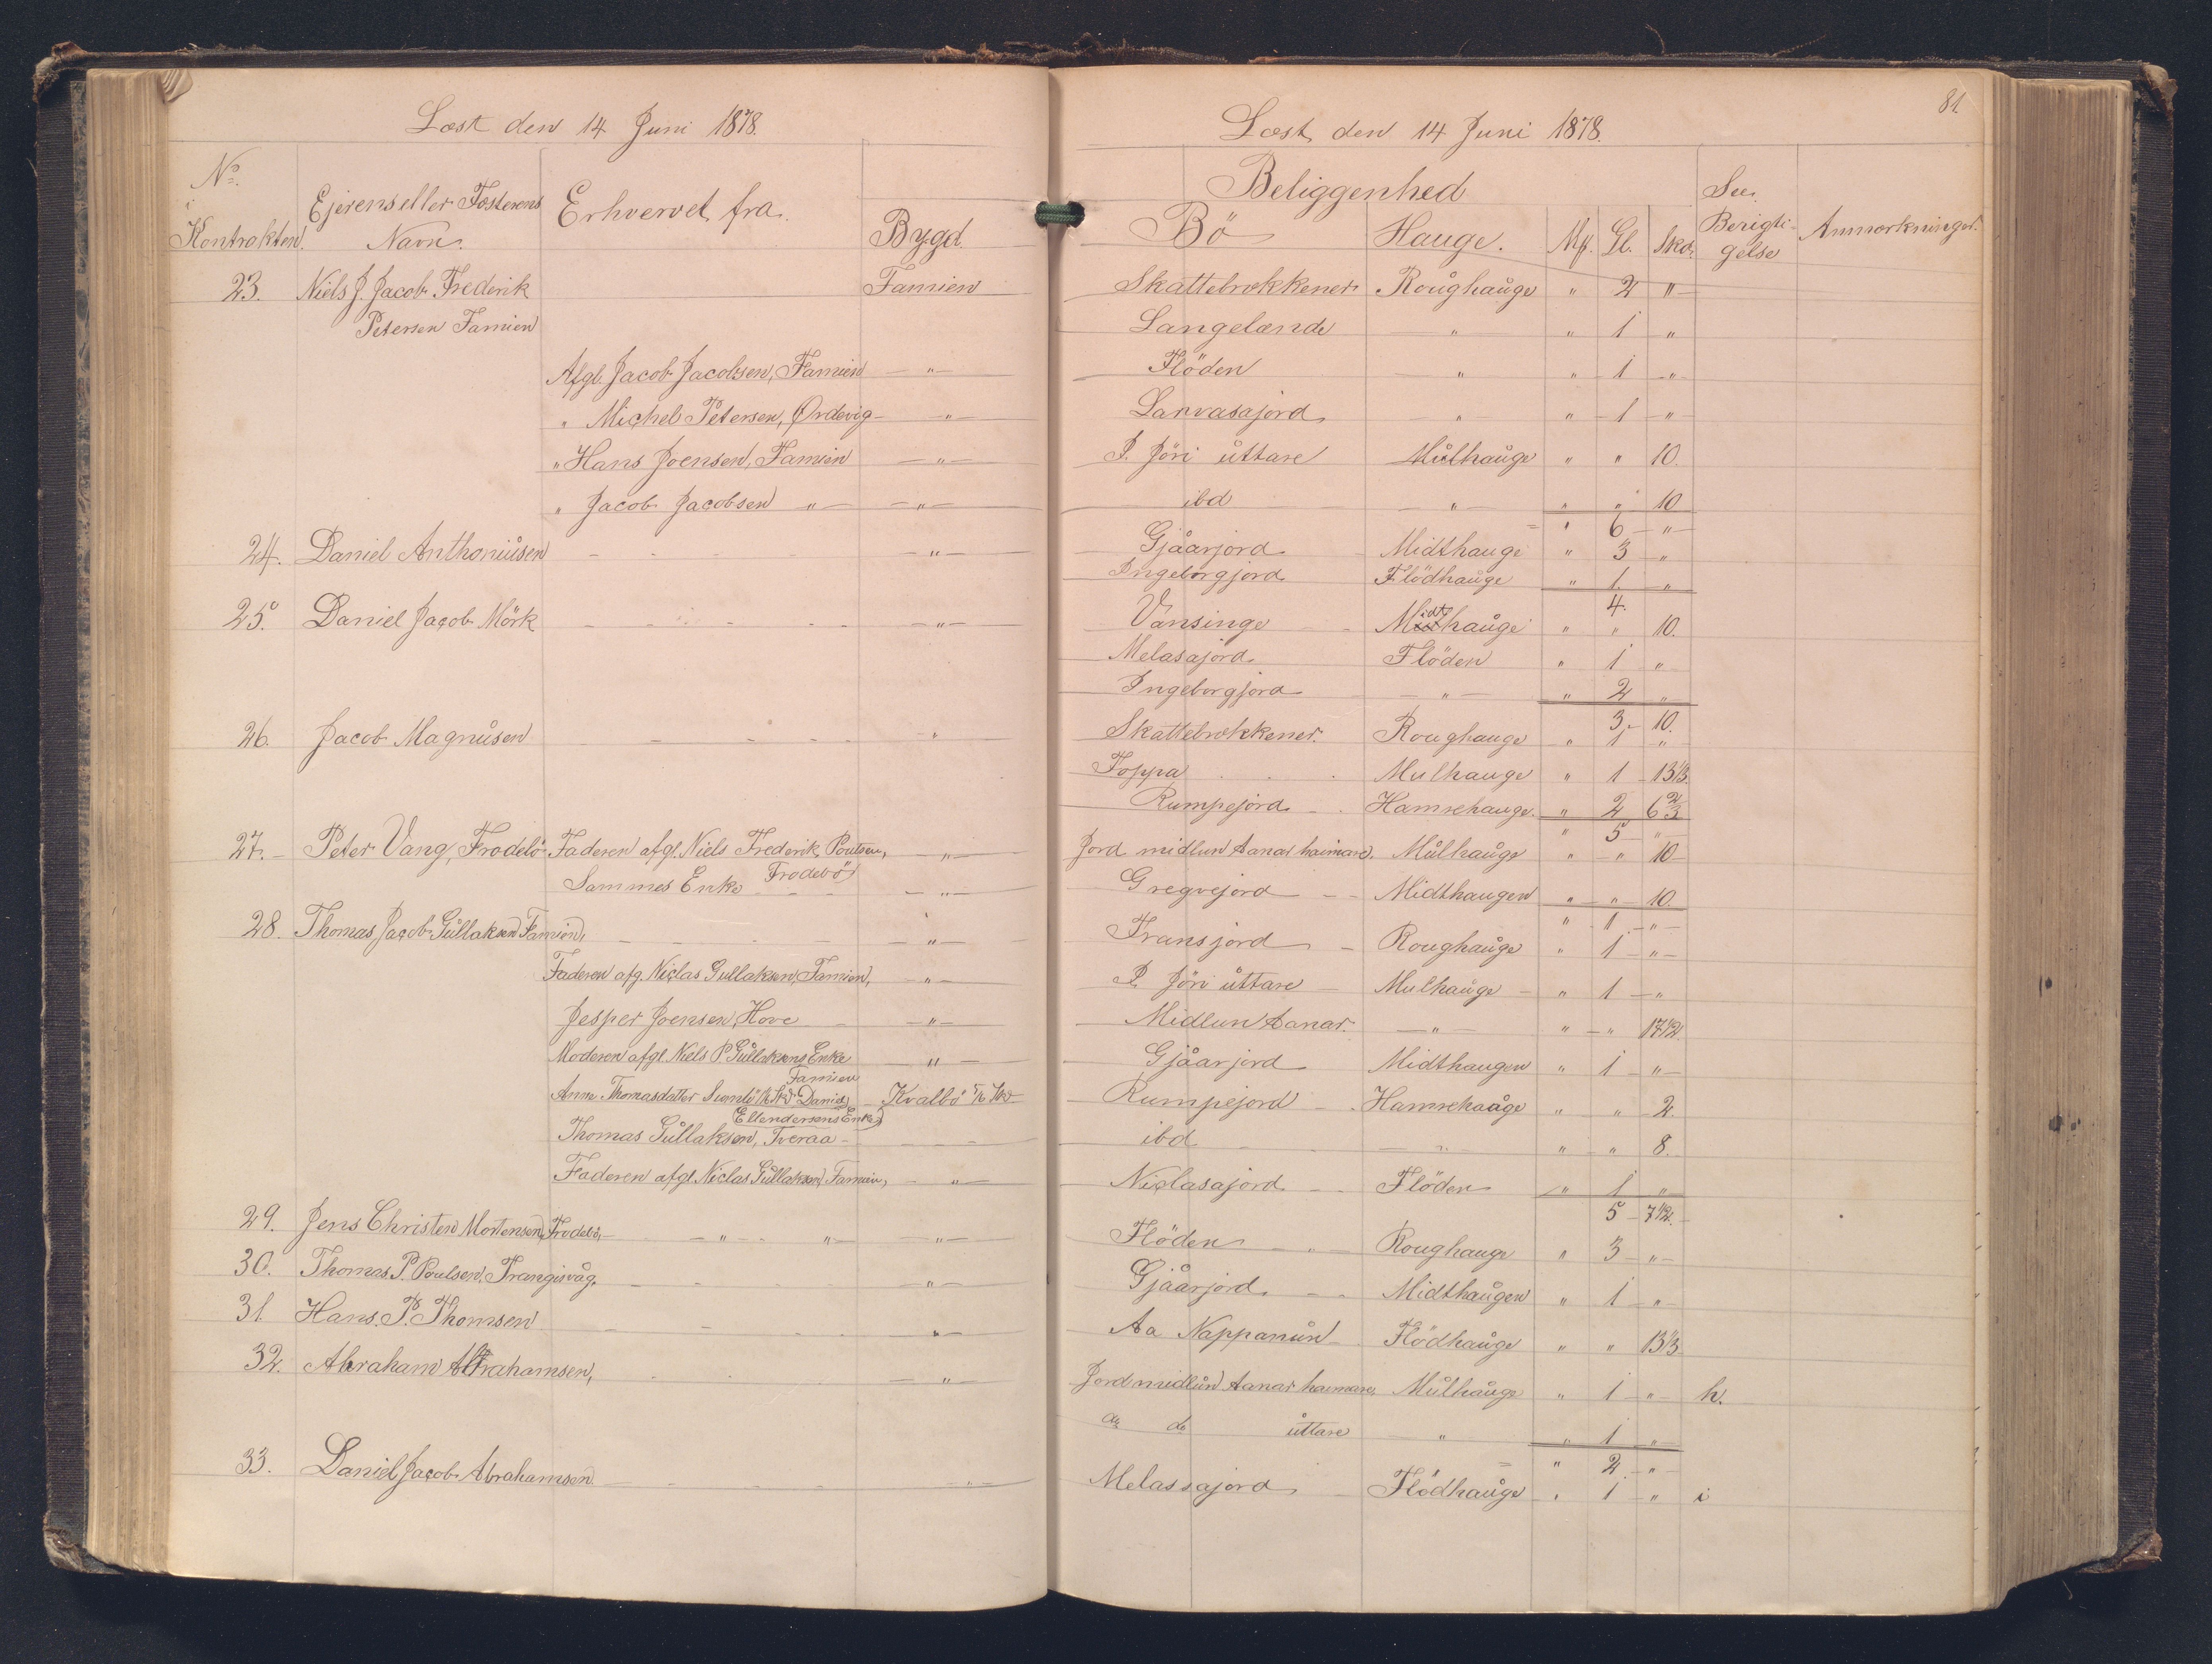 Læst den 14 Juni 1878.
No. i Kontrakten.
Ejerens eller Fæsterens Navn.
Erhvervet fra.
Bygd.
23. Niels J. Jacob Frederik Famien
Petersen Famien
Afgl. Jacob Jacobsen, Famien — " —
" Michel Petersen, Ørdevig — " —
" Hans Joensen, Famien — " —
" Jacob Jacobsen — " — — " —
24. Daniel Anthoniusen — " —
25. Daniel Jacob Mörk — " —
26. Jacob Magnusen "
27. Peter Vang, Frodebö Faderen afgl. Niels Frederik Poulsen, — " —
Frodebö
Sammes Enke — " —
28. Thomas Jacob Gullaksen Famien, — " —
Faderen afg. Niclas Gullaksen, Famien, — " —
Jesper Joensen, Hove — " —
Moderen afgl. Niels P. Gullaksens Enke — " —
Famien
Anne Thomasdatter Sumbö Daniel Kvalbö
Ellendersens Enke)
Thomas Gullaksen, Tveraa
Faderen afgl. Niclas Gullaksen, Famien, — " —
29. Jens Christen Mortensen, Frodebö, — " — " — — " —
30. Thomas P. Poulsen, Trangisvåg. — " —
31. Hans. P. Thomsen — " —
32. Abraham Abrahamsen, — " —
33. Daniel Jacob Abrahamsen. — " —
81.
Læst den 14 Juni 1878.
Beliggenhed
Bö Hauge. Mk. Gl. Skd.
See Berigtigelse
Anmærkninger.
Skattebrekkener Roughauge " 2 "
Langelænde — " — " 1 "
Flöden " " 1 "
Larvasajord " " 1 "
I. Jöri uttare Mulhauge " " 10.
ibd — " — " " 10
" 6 "
Gjåarjord Midthauge " 3 "
Ingeborgjord Flödhauge " 1. "
4.
Vansinge Midthauge " " 10.
Melasajord Flöden " 1 "
Ingeborgjord — " — " 2 "
3 10.
Skattebrekkener. Roughauge " 1 "
Toppa Mulhauge " 1 13 1/3.
Rumpejord Hamrehauge. " 2 6 2/3
" 5 "
Jord midlun Aanar haimare. Mulhauge " " 10
Gregvejord Midthaugen " " 10.
" 1 "
Fransjord Roughauge " 1 "
I. Jöri uttare Mulhauge " 1 "
Midlun Aanar. — " — " " 17 1/2
Gjåarjord Midthaugen " 1 "
Rumpejord Hamrehauge " " 2.
ibd " " " 8.
Niclasajord Flöden " 1 "
5 7 1/2.
Flöden " Roughauge " 3 "
Gjåarjord Midthaugen " 1 "
Aa Nappanun Flödhauge " " 13 1/3
Jord midlun Aanar haimare Mulhauge " 1 " h.
do uttare " " 1 "
" 2 "
Melassajord Flödhauge " 1 " i